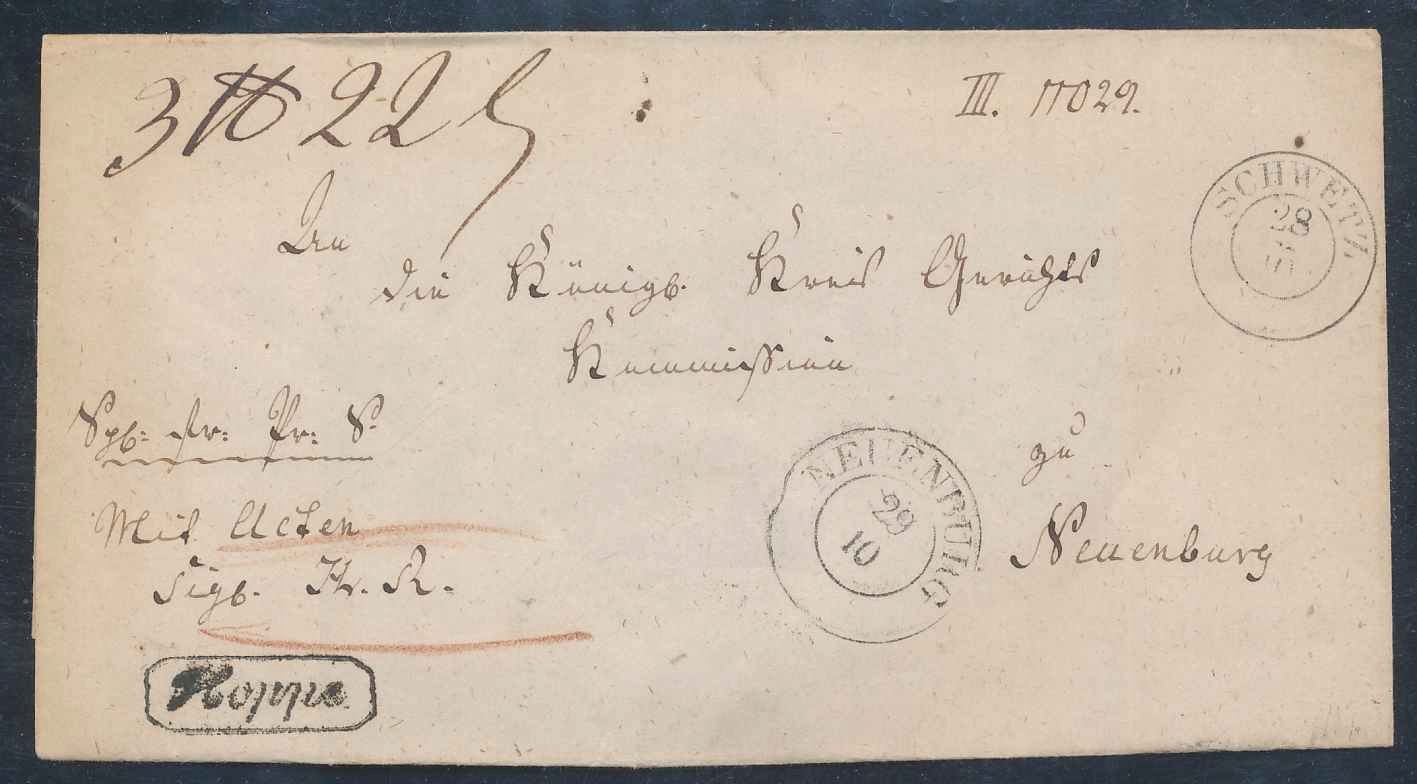 3 ℔ 22
III. 11029.
SCHWETZ
28
10
An
die Königl. Kreis Gerichts
Kommission
zu
Neuenburg
NEUENBURG
29
10
Mit Acten
sigl. K. R.
Hoppe